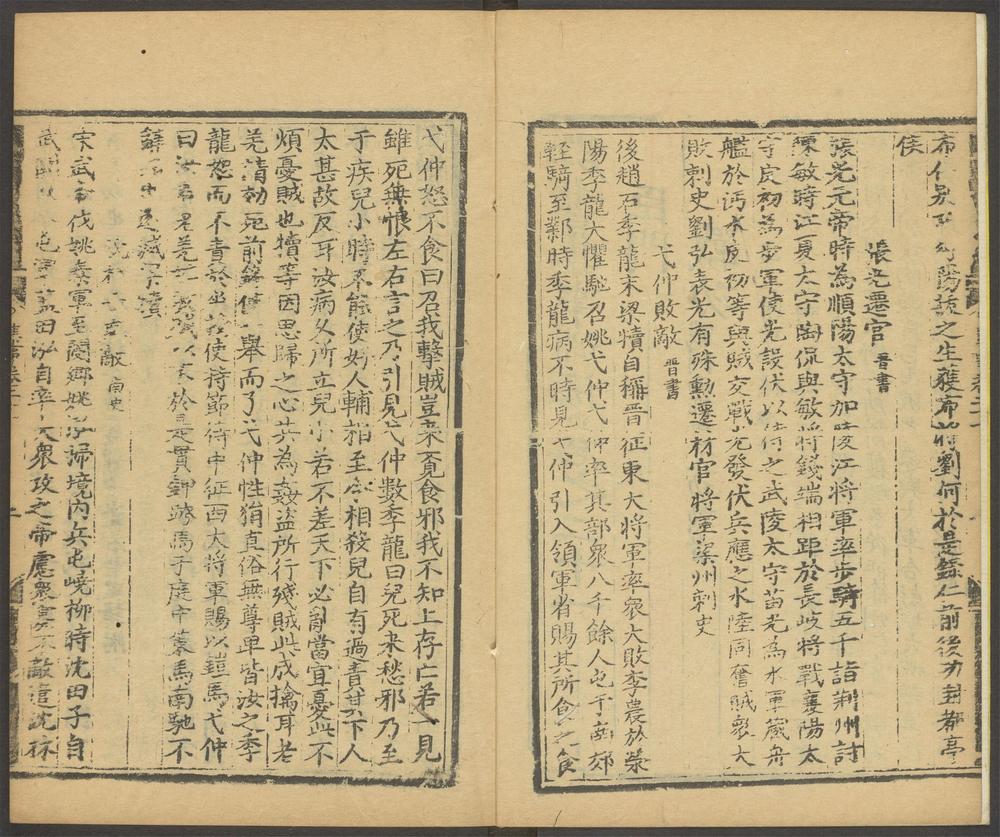 布仁別 陽 之生雍布 劉何於是錄仁前後功封都亭
侯
張光遷官 晉書
張光元帝時為順陽太守加陵江將軍率步騎五千詣荊州討
陳敏時江夏太守陶侃與敏將錢端相距於長岐將戰襄陽太
守皮初為步軍使光設伏以待之武陵太守苗光為水軍藏舟
艦於沔水皮初等與賊交戰光發伏兵應之水陸同奮賊衆大
敗刺史劉弘表光有殊勳遷材官將軍梁州刺史
弋仲敗敵 晉書
後趙石季龍末梁犢自稱晉征東大將軍率衆大敗李農於滎
陽季龍大懼馳召姚弋仲弋仲率其部衆八千餘人屯于南郊
輕騎至鄴時季龍病不時見弋仲引入領軍省賜其所食之食
弋仲怒不食曰召我擊賊豈來覓食邪我不知上存亡若一見
雖死無恨左右言之乃引見弋仲數季龍曰兒死來愁邪乃至
于疾兒小時不能使好人輔相至令相殺兒自有過責其下人
太甚故反耳汝病久所立兒小若不差天下必亂當宜憂此不
煩憂賊也犢等因思歸之心共為姦盜所行殘賊此成擒耳老
羌請効死前鋒使一舉而了弋仲性狷直俗無尊卑皆汝之季
龍恕而不責於坐授使持節侍中征西大將軍賜以鎧馬弋仲
曰汝看老羌堪破賊以不於是貫鉀跨馬于庭中策馬南馳不
辭而出遂滅梁犢
敵 南史
宋武帝伐姚秦軍至閿鄉姚泓掃境內兵屯嶢柳時沈田子自
武關 屯 藍田泓自率大衆攻之帝慮衆寡不敵遣沈林